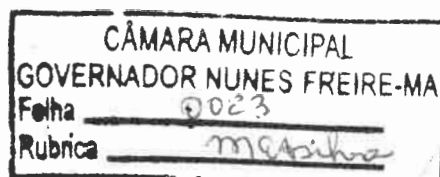 CÂMARA MUNICIPAL
GOVERNADOR NUNES FREIRE-MA
Folha 0023
Rubrica